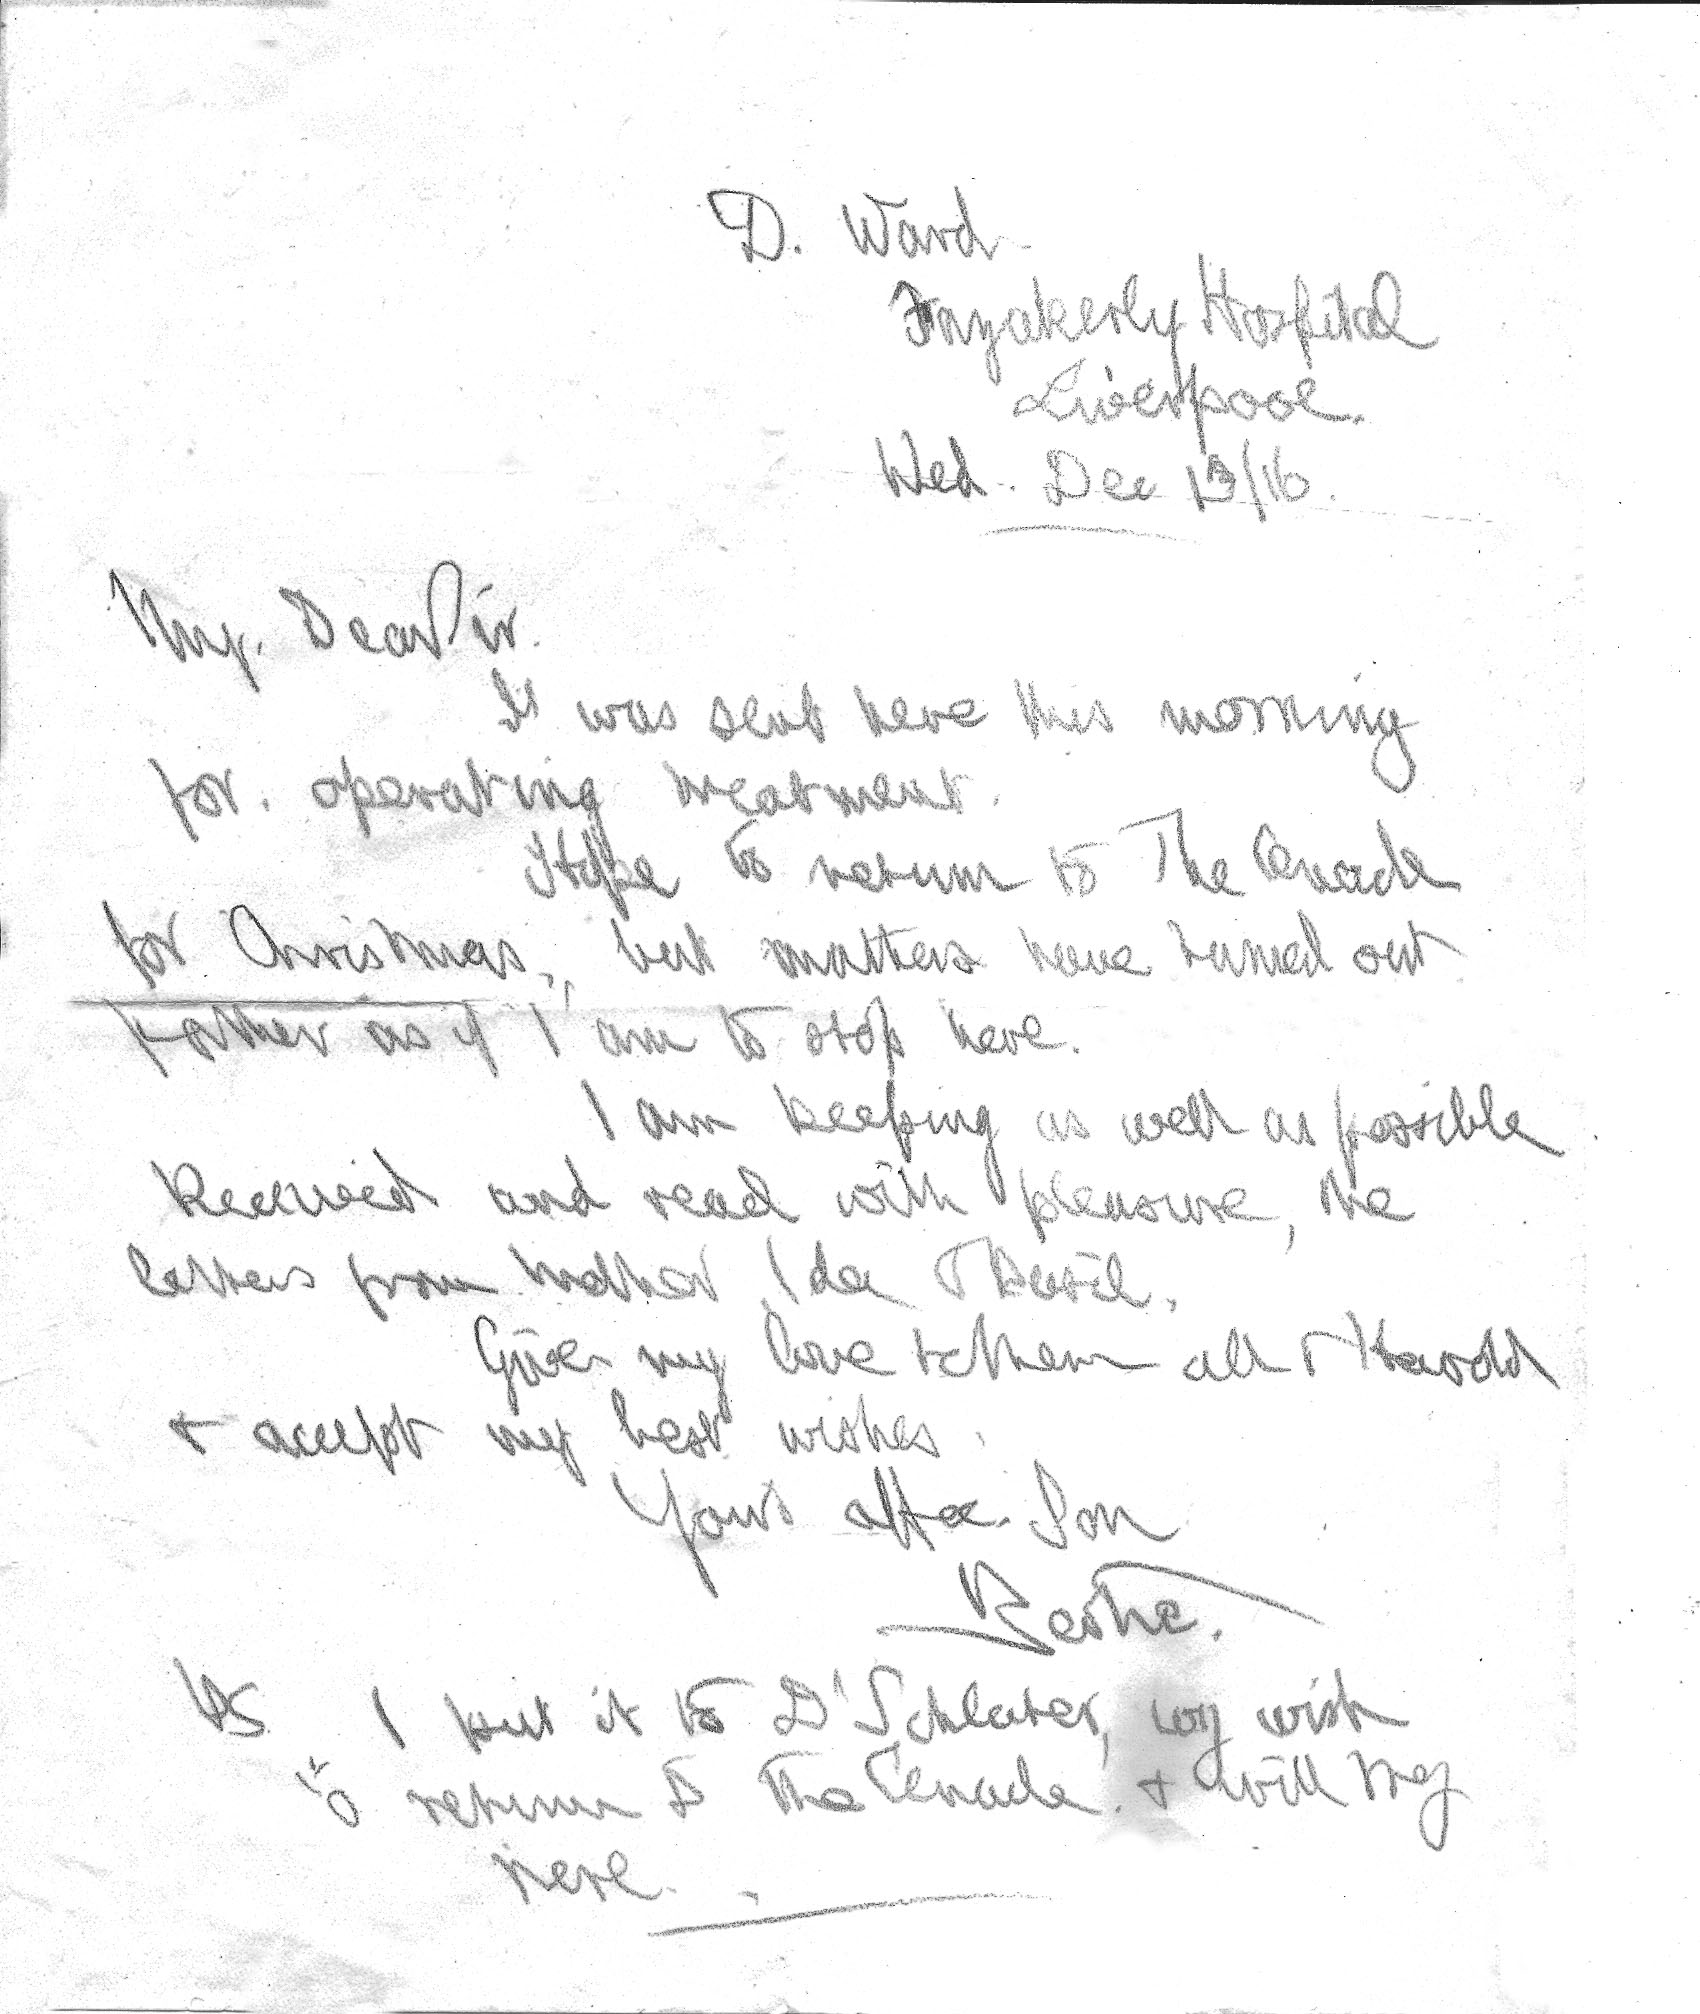 D. Ward
Fazakerly Hospital
Liverpool.
Wed. Dec 13/16.
My. Dear Sir.
It was sent here this morning
for. operating treatment.
Hope to return to The
for Christmas, but matters have turned out
as if I am to stop here.
I am keeping as well as possible
Received and read with pleasure, the
letters from Mother, Ida &
Give my love to them all & Harold
& accept my best wishes.
Yours affte. Son
PS I put it to Dr Schlater, my wish
to return to The & will try
here.